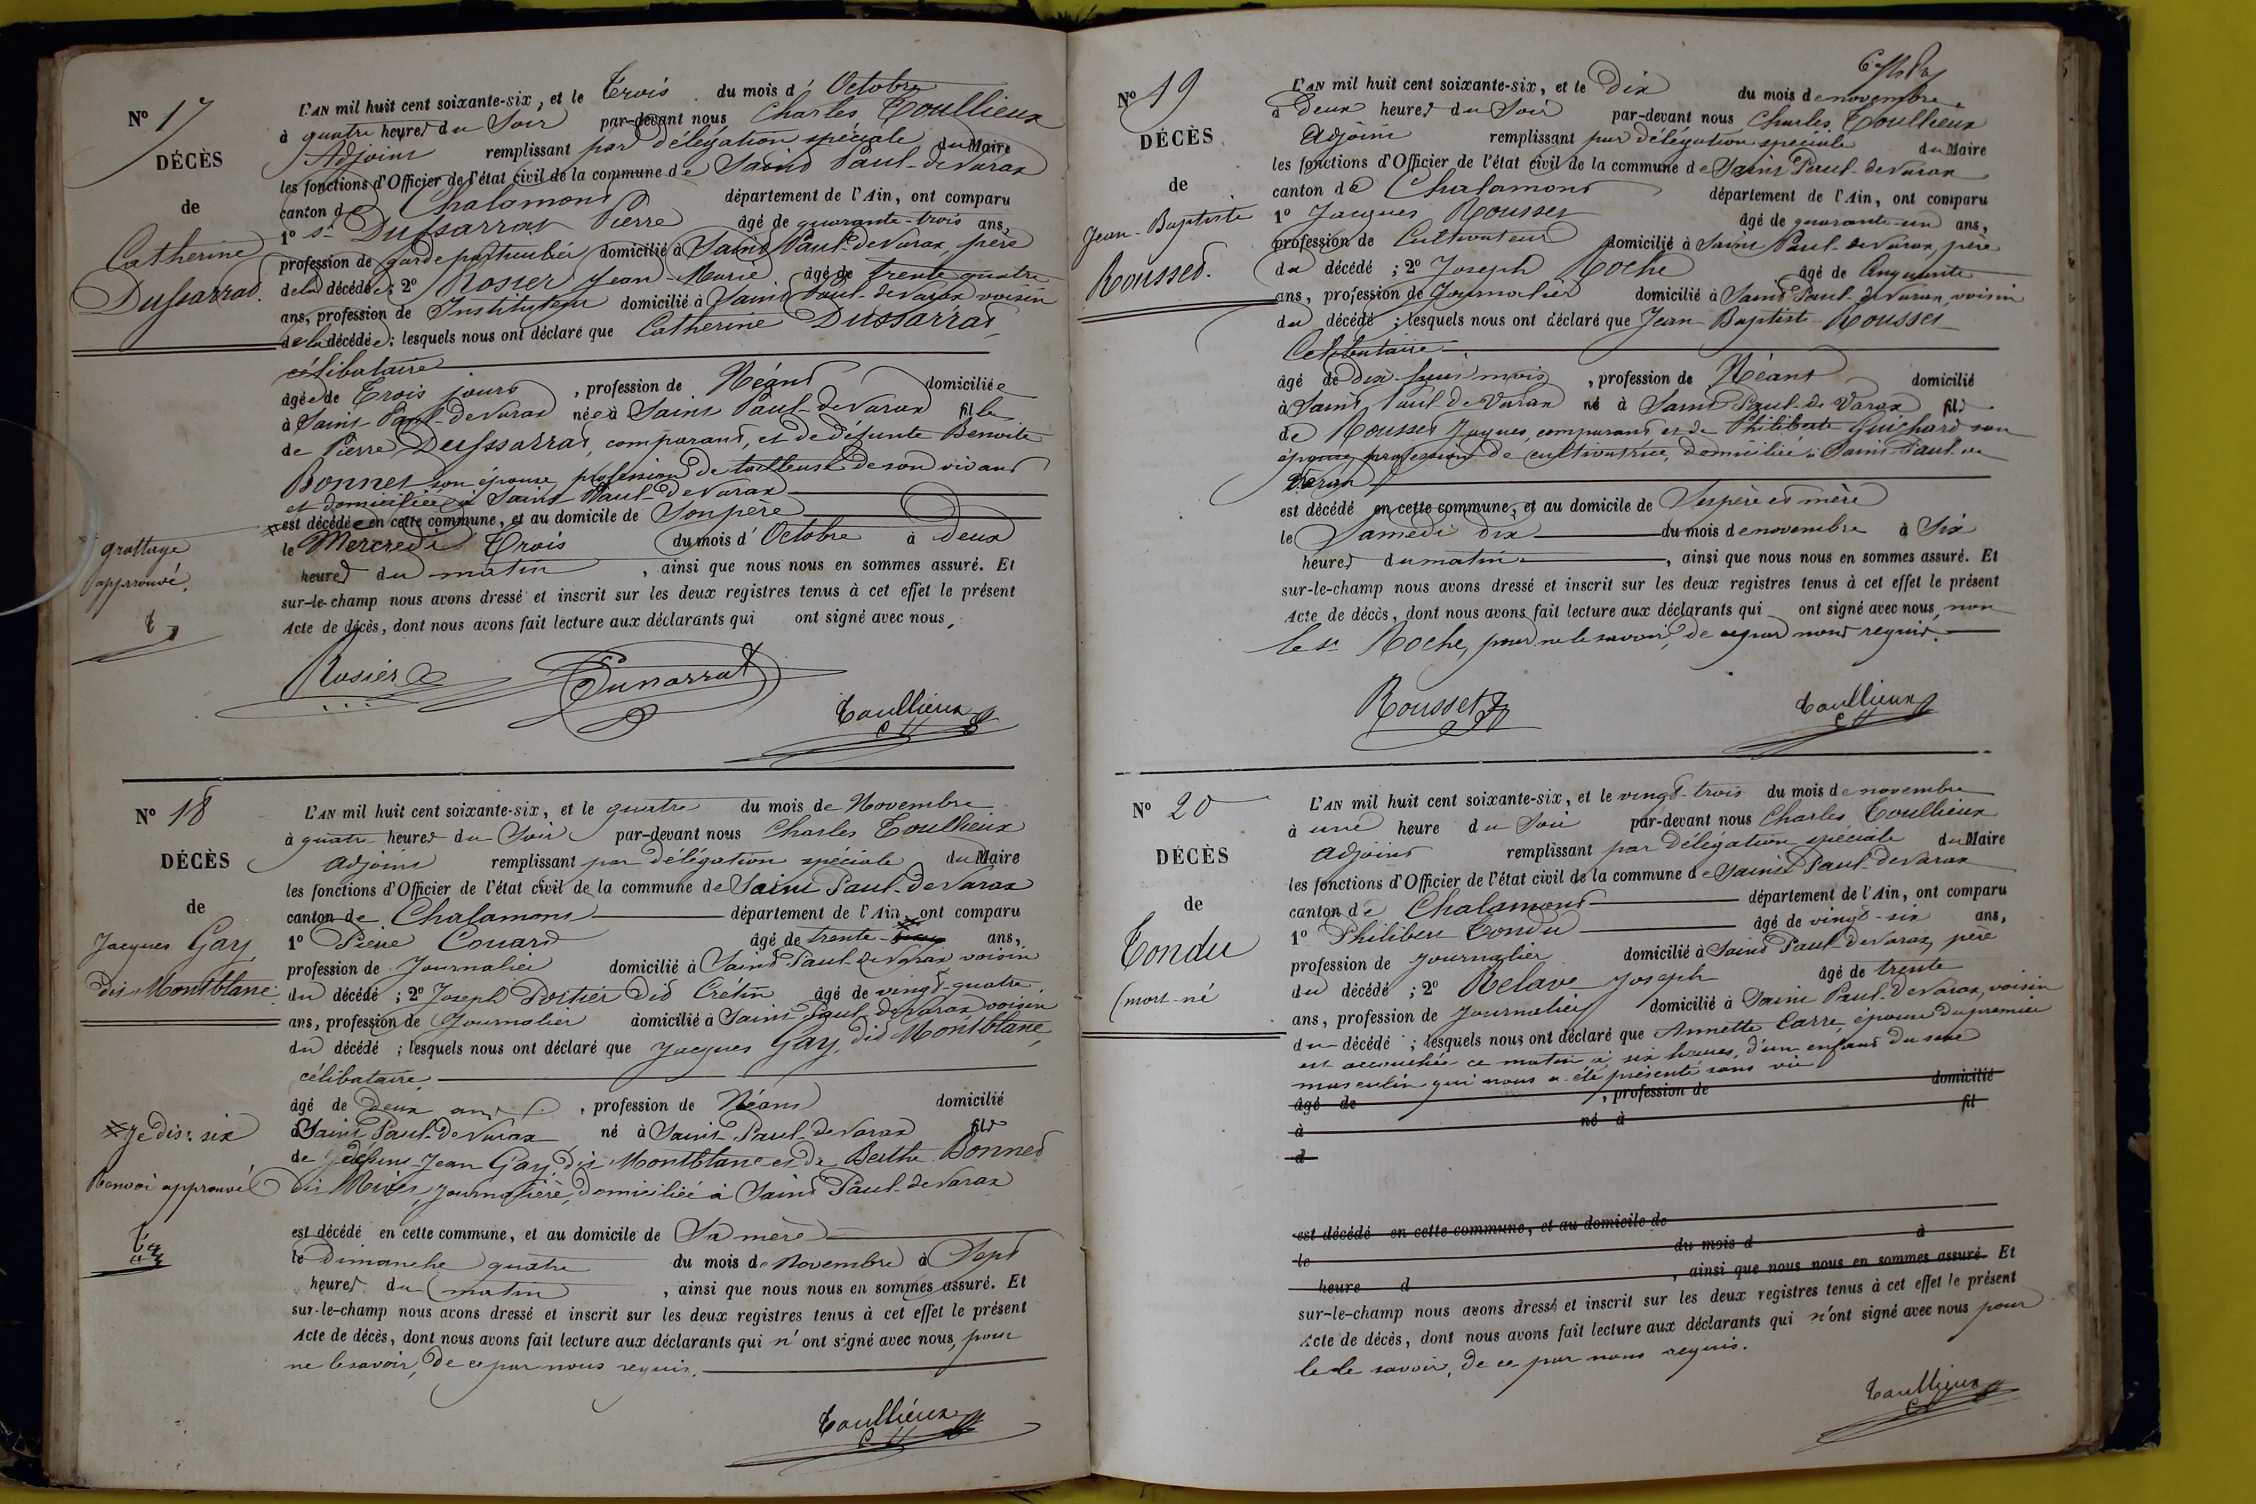 N° 17
DÉCÈS
de
Catherine
Dussarrat.
L'AN mil huit cent soixante-six, et le Trois du mois d' Octobre
à quatre heures du Soir par-devant nous Charles Toullieux
Adjoint remplissant par délégation spéciale du Maire
les fonctions d'Officier de l'état civil de la commune de Saint Paul-de Varax
canton de Chalamont département de l'Ain, ont comparu
1° sr Dussarrat Pierre âgé de quarante-trois ans,
profession de garde particulier domicilié à Saint Paul-de Varax, père
de la décédée ; 2° Rosier Jean Marie âgé de trente quatre
ans, profession de Instituteur domicilié à Saint Paul-de Varax voisin
de la décédée ; lesquels nous ont déclaré que Catherine Dussarrat,
célibataire
âgée de Trois jours , profession de Néant domiciliée
à Saint-Paul-de Varax née à Saint Paul-de Varax fille
de Pierre Dussarrat, comparant, et de défunte Benoite
Bonnet son épouse, profession de tailleuse de son vivant
et domiciliée à Saint Paul-de Varax
est décédée en cette commune, et au domicile de Son père
le Mercredi Trois du mois d' Octobre à deux
heures du matin , ainsi que nous nous en sommes assuré. Et
sur-le-champ nous avons dressé et inscrit sur les deux registres tenus à cet effet le présent
Acte de décès, dont nous avons fait lecture aux déclarants qui ont signé avec nous,
grattage
approuvé.
Rosier Dussarrat
Toullieux
N° 18
DÉCÈS
de
Jacques Gay
dit Montblanc
L'AN mil huit cent soixante-six, et le quatre du mois de Novembre
à quatre heures du Soir par-devant nous Charles Toullieux
adjoint remplissant par délégation spéciale du Maire
les fonctions d'Officier de l'état civil de la commune de Saint Paul-de Varax
canton de Chalamont département de l'Ain, ont comparu
1° Pierre Couard âgé de trente- ans,
profession de Journalier domicilié à Saint Paul-de Varax voisin
du décédé ; 2° Joseph Portier dit Crétin âgé de vingt-quatre
ans, profession de Journalier domicilié à Saint Paul-de Varax, voisin
du décédé ; lesquels nous ont déclaré que Jacques Gay, dit Montblanc,
célibataire
âgé de deux ans , profession de Néant domicilié
à Saint Paul-de Varax né à Saint-Paul-de Varax fils
de Jean Gay dit Montblanc et de Berthe Bonnet
journalière, domiciliée à Saint Paul-de Varax
est décédé en cette commune, et au domicile de Sa mère
le dimanche quatre du mois de Novembre à Sept
heures du matin , ainsi que nous nous en sommes assuré. Et
sur-le-champ nous avons dressé et inscrit sur les deux registres tenus à cet effet le présent
Acte de décès, dont nous avons fait lecture aux déclarants qui n'ont signé avec nous, pour
ne le savoir, de ce par nous requis.
je dis : six
Renvoi approuvé
Toullieux
N° 19
DÉCÈS
de
Jean-Baptiste
Rousset.
L'AN mil huit cent soixante-six, et le Dix du mois de novembre
à deux heures du Soir par-devant nous Charles Toullieux
Adjoint remplissant par délégation spéciale du Maire
les fonctions d'Officier de l'état civil de la commune de Saint Paul-de Varax
canton de Chalamont département de l'Ain, ont comparu
1° Jacques Rousset âgé de quarante-un ans,
profession de Cultivateur domicilié à Saint Paul-de Varax, père
du décédé ; 2° Joseph Roche âgé de Cinquante
ans, profession de Journalier domicilié à Saint Paul-de Varax, voisin
du décédé ; lesquels nous ont déclaré que Jean-Baptiste Rousset
Célibataire
âgé de dix-huit mois , profession de Néant domicilié
à Saint Paul-de Varax né à Saint Paul-de Varax fils
de Rousset Jacques, comparant et de Philiberte Guichard son
épouse, profession de cultivatrice, domiciliée à Saint-Paul-de
Varax
est décédé en cette commune, et au domicile de Ses père et mère
le Samedi dix du mois de novembre à Six
heures du matin , ainsi que nous nous en sommes assuré. Et
sur-le-champ nous avons dressé et inscrit sur les deux registres tenus à cet effet le présent
Acte de décès, dont nous avons fait lecture aux déclarants qui ont signé avec nous, non
le sr Roche, pour ne le savoir, de ce par nous requis.
Rousset Toullieux
N° 20
DÉCÈS
de
Tondu
(mort-né
L'AN mil huit cent soixante-six, et le vingt-trois du mois de novembre
à une heure du Soir par-devant nous Charles Toullieux
adjoint remplissant par délégation spéciale du Maire
les fonctions d'Officier de l'état civil de la commune de Saint Paul-de Varax
canton de Chalamont département de l'Ain, ont comparu
1° Philibert Tondu âgé de vingt-six ans,
profession de journalier domicilié à Saint Paul-de Varax, père
du décédé ; 2° Relave Joseph âgé de trente
ans, profession de Journalier domicilié à Saint Paul-de Varax, voisin
du décédé ; lesquels nous ont déclaré que Annette Carre, épouse du premier
est accouchée ce matin à six heures, d'un enfant du sexe
masculin qui nous a été présenté sans vie
âgé de , profession de domicilié
à né à fil
d
est décédé en cette commune, et au domicile de
le du mois d à
heure d , ainsi que nous nous en sommes assuré. Et
sur-le-champ nous avons dressé et inscrit sur les deux registres tenus à cet effet le présent
Acte de décès, dont nous avons fait lecture aux déclarants qui n'ont signé avec nous pour
le le savoir, de ce par nous requis.
Toullieux